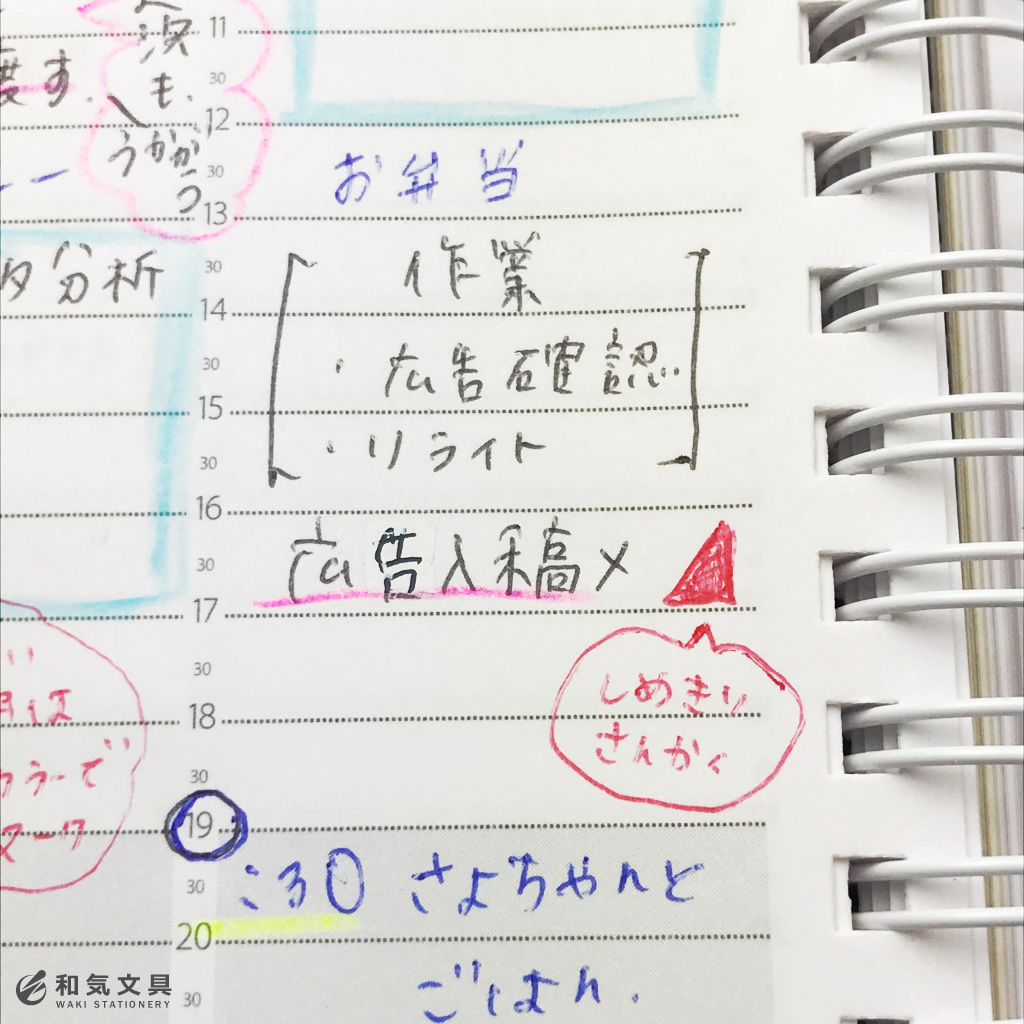 11
演
30
も、
度す.
12
うかがう
30
お弁当
13
タ分析
30
作業
14
30
・広告確認
15
30
・リライト
16
30
広告入稿〆
17
30
しめきり
18
さんかく
月は
カラーで
30
マーク
19
30
ころ さよちゃんと
20
ごはん.
30
和気文具
WAKI STATIONERY